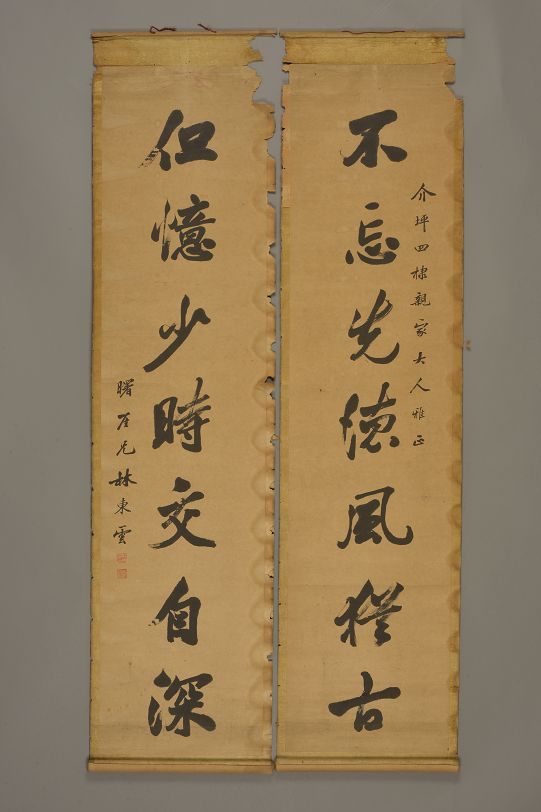 介坪四棣親家大人雅正
不忘先德風猶古
但憶少時交自深
林東雲